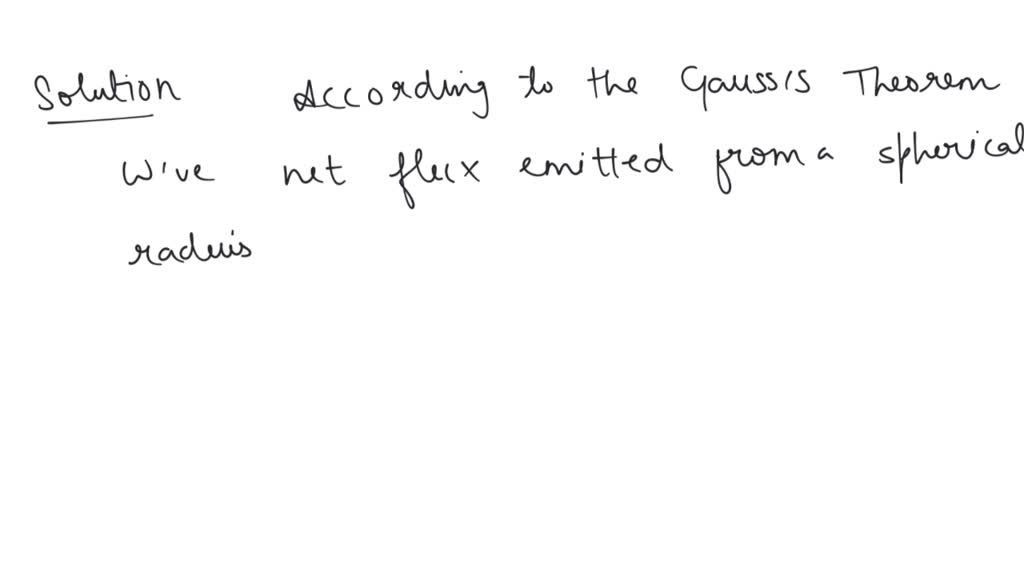 Solution According to the Gauss's Theorem
W've net flux emitted from a spherical
raduis